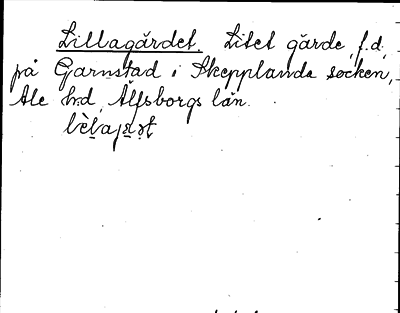 Lillagärdet. Litet gärde, f.d.
på Garnstad i Skepplanda socken,
Ale h:d, Älfsborgs län.